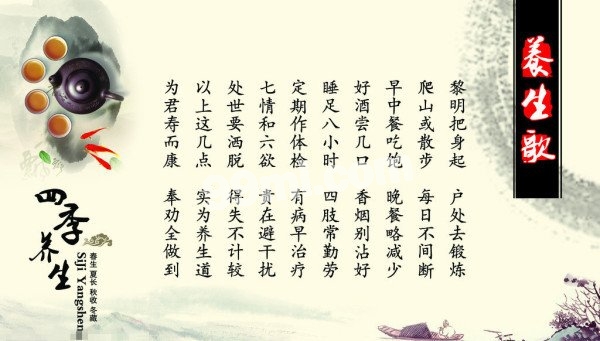 養生歌
黎明把身起 户处去锻炼
爬山或散步 每日不间断
早中餐吃饱 晚餐略减少
好酒尝几口 香烟别沾好
睡足八小时 四肢常勤劳
定期作体检 有病早治疗
七情和六欲 贵在避干扰
处世要洒脱 得失不计较
以上这几点 实为养生道
为君寿而康 奉劝全做到
四季养生
春生 夏长 秋收 冬藏
Siji Yangshen